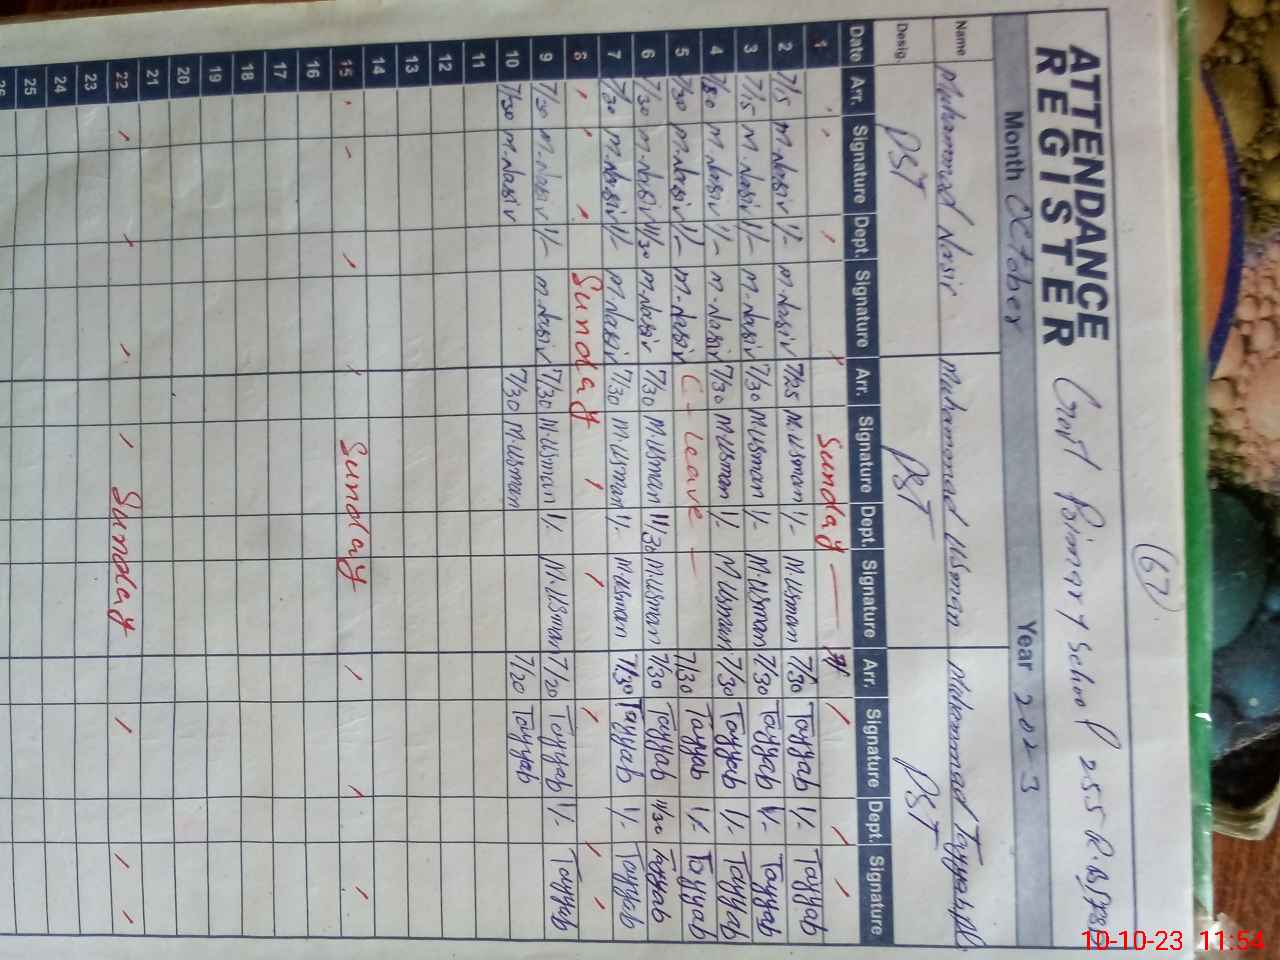 (67)
ATTENDANCE REGISTER Govt Primary School 255 R.B FSD
Month October Year 2023
Name Muhammad Nasir Muhammad Usman Muhammad Tayyab
Desig. PST PST PST
Date Arr. Signature Dept. Signature Arr. Signature Dept. Signature Arr. Signature Dept. Signature
1 Sunday
2 7/15 M.Nasir 1/- M.Nasir 7/25 M.Usman 1/- M.Usman 7/30 Tayyab 1/- Tayyab
3 7/15 M.Nasir 1/- M.Nasir 7/30 M.Usman 1/- M.Usman 7/30 Tayyab 1/- Tayyab
4 7/30 M.Nasir 1/- M.Nasir 7/30 M.Usman 1/- M.Usman 7/30 Tayyab 1/- Tayyab
5 7/30 M.Nasir 1/- M.Nasir C-Leave 7/30 Tayyab 1/- Tayyab
6 7/30 M.Nasir 11/30 M.Nasir 7/30 M.Usman 11/30 M.Usman 7/30 Tayyab 11/30 Tayyab
7 7/30 M.Nasir 1/- M.Nasir 7/30 M.Usman 1/- M.Usman 7/30 Tayyab 1/- Tayyab
8 Sunday
9 7/30 M.Nasir 1/- M.Nasir 7/30 M.Usman 1/- M.Usman 7/20 Tayyab 1/- Tayyab
10 7/30 M.Nasir 7/30 M.Usman 7/20 Tayyab
11
12
13
14
15 Sunday
16
17
18
19
20
21
22 Sunday
23
24
25
26
10-10-23 11:54